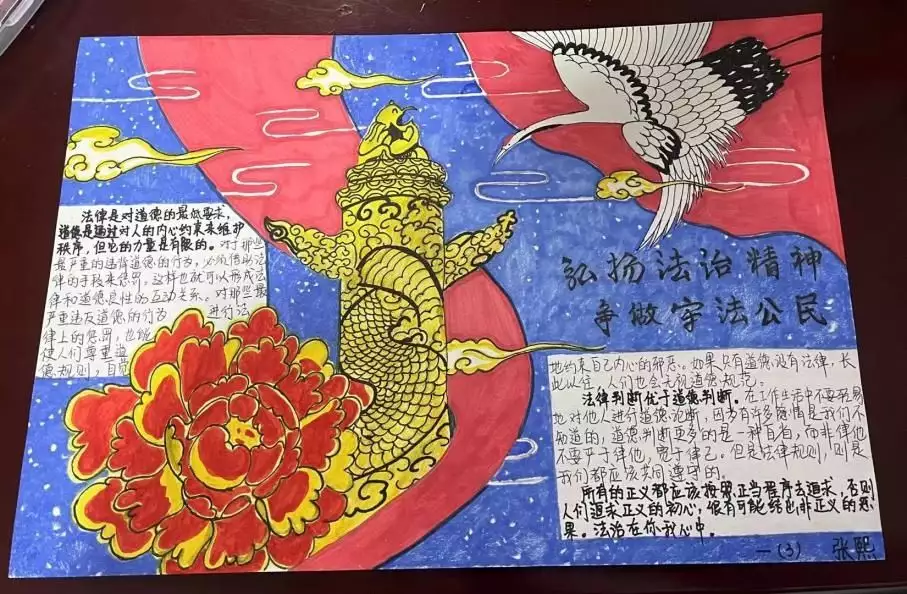 弘扬法治精神
争做守法公民
法律是对道德的最低要求，
道德是通过对人的内心约束来维护
秩序，但它的力量是有限的。对那些
最严重的违背道德的行为，必须借助法
律的手段来惩罚。这样也就可以形成法
律和道德良性的互动关系。对那些最
严重违反道德的行为 进行法
律上的惩罚，也能
使人们尊重道
德规则，自觉
地约束自己内心的邪恶。如果只有道德没有法律，长
此以往，人们也会无视道德规范。
法律判断优于道德判断。在工作生活中不要轻易
地对他人进行道德论断，因为有许多隐情是我们不
知道的，道德判断更多的是一种自律，而非律他
不要严于律他，宽于律己。但是法律规则，则是
我们都应该共同遵守的。
所有的正义都应该按照正当程序去追求，否则
人们追求正义的初心，很有可能结出非正义的恶
果。法治在你我心中。
一（3） 张熙